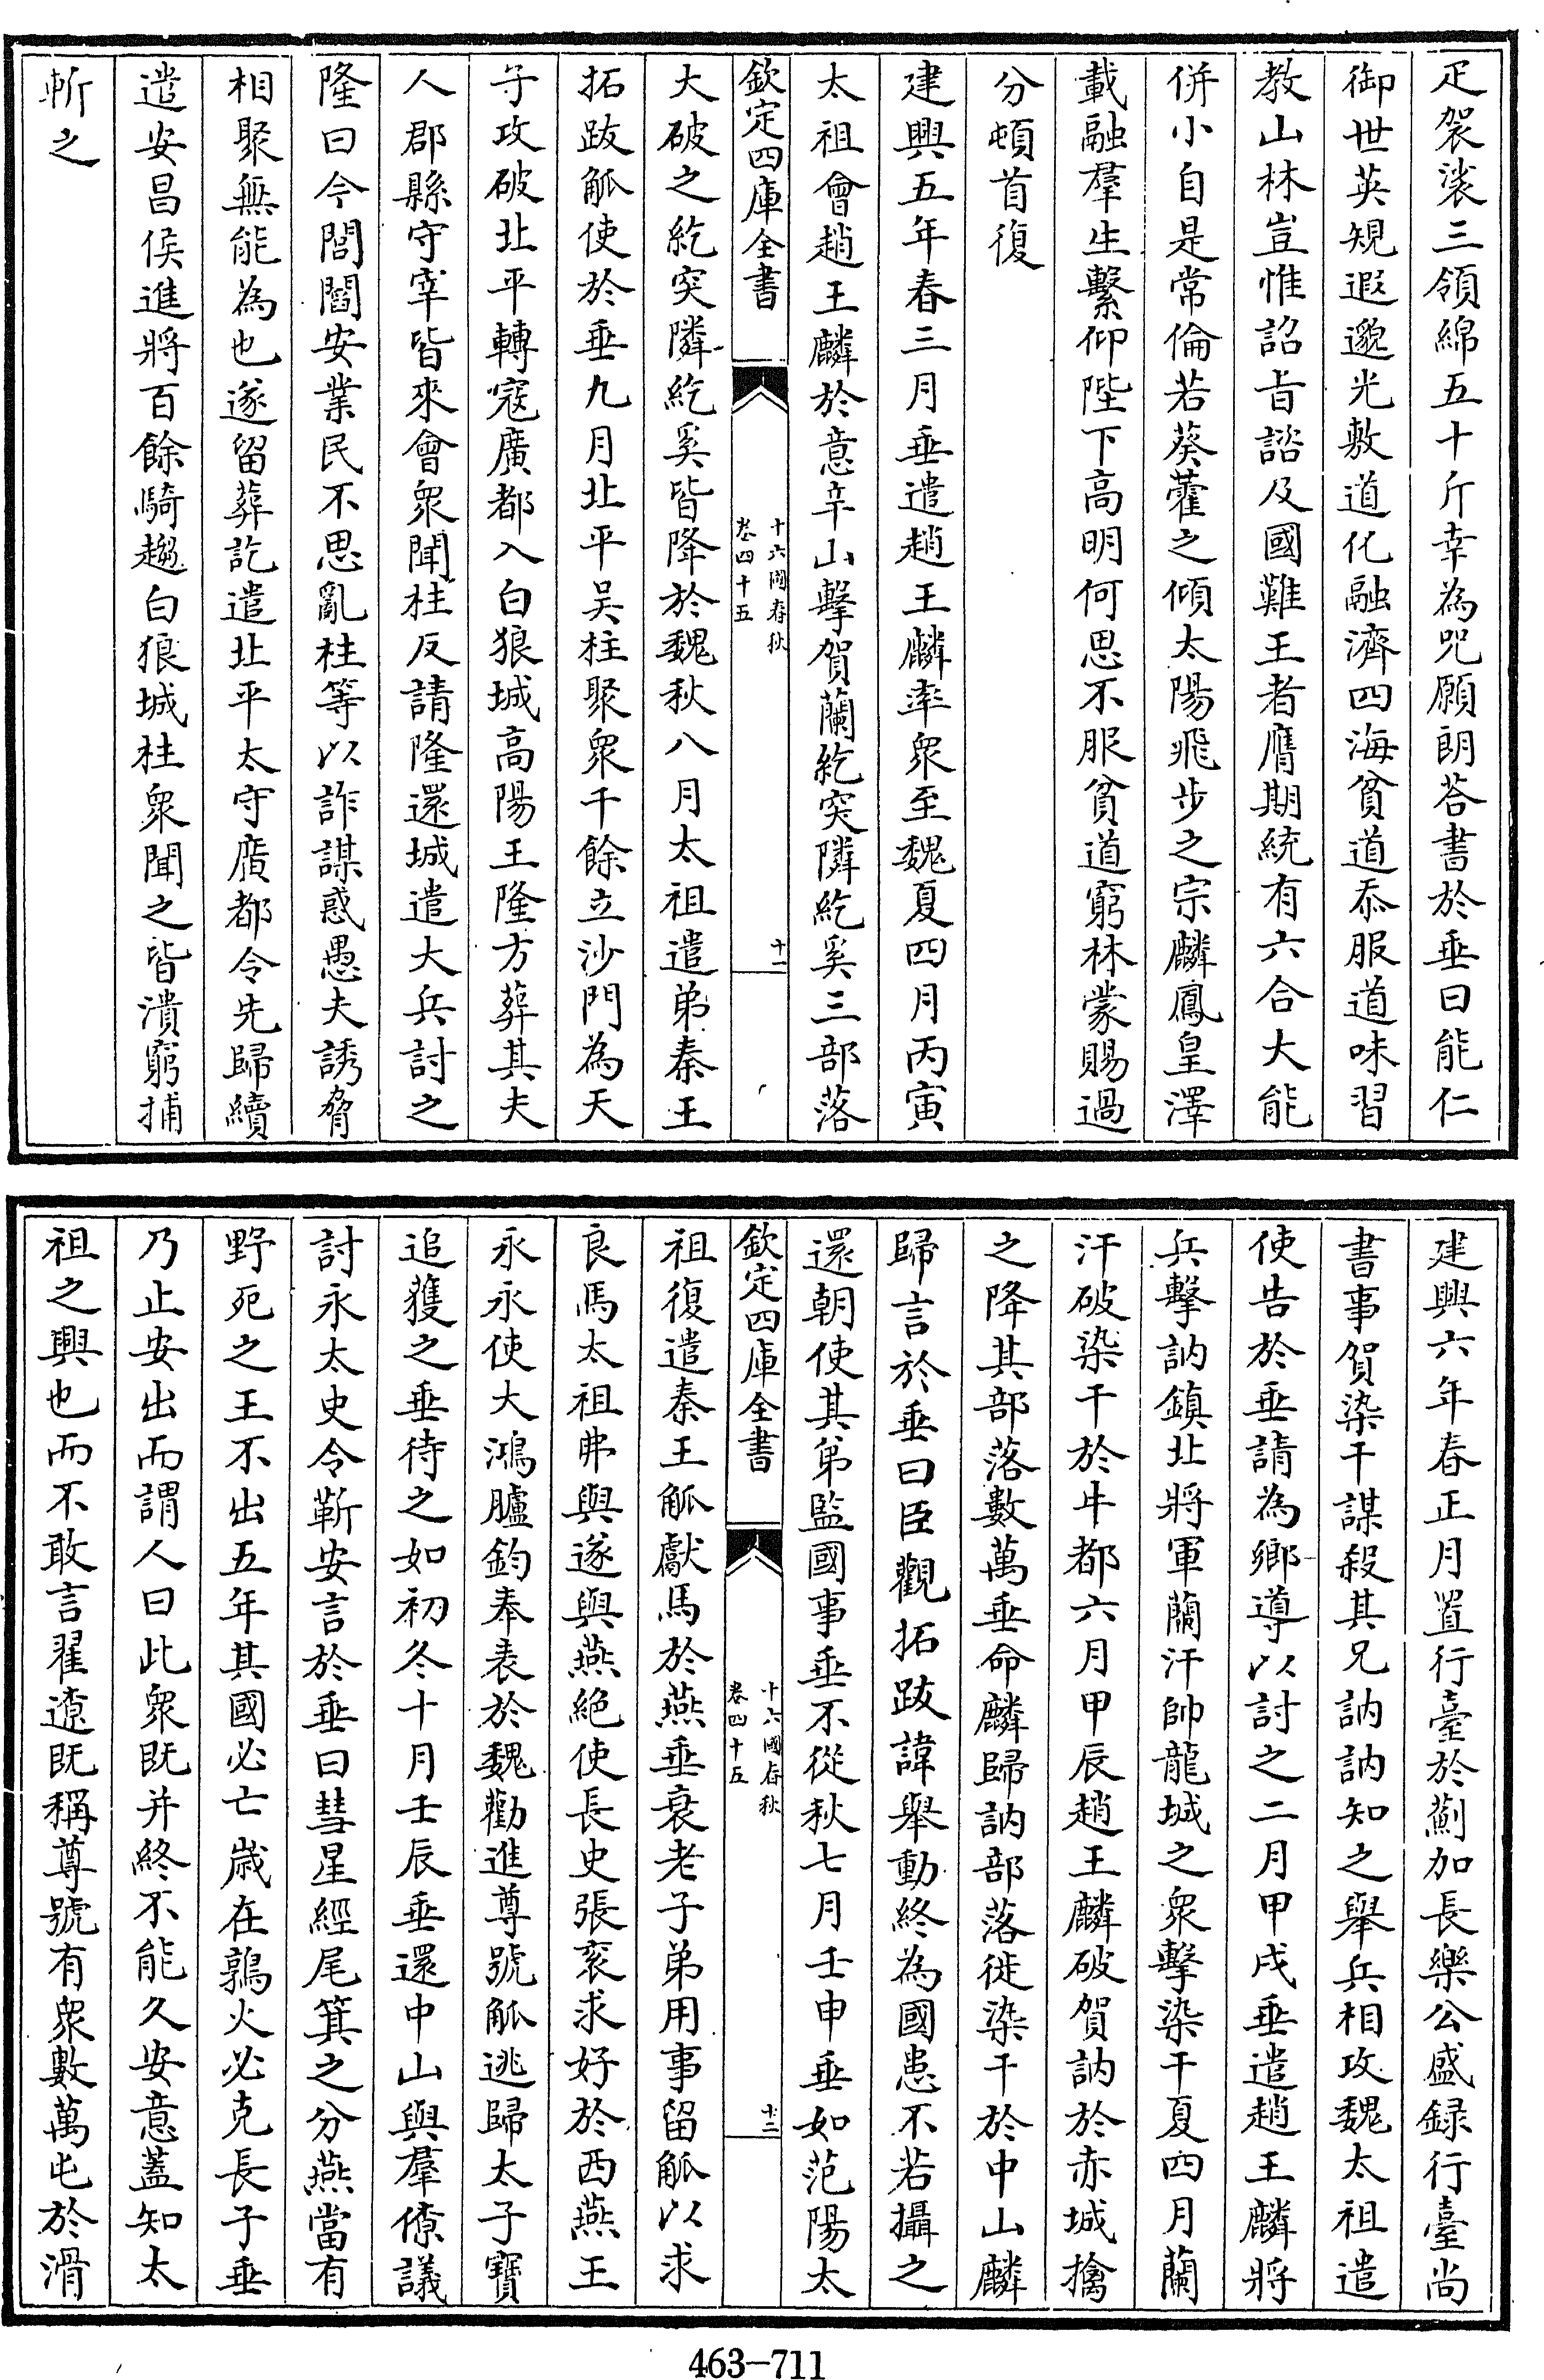 疋袈裟三領綿五十斤幸為咒願朗荅書於垂曰能仁
御世英規遐邈光敷道化融濟四海貧道忝服道味習
教山林豈惟詔旨諮及國難王者膺期統有六合大能
併小自是常倫若葵藿之傾太陽飛步之宗麟鳳皇澤
載融羣生繫仰陛下高明何思不服貧道窮林蒙賜過
分頓首復
建興五年春三月垂遣趙王麟率衆至魏夏四月丙寅
太祖會趙王麟於意辛山擊賀蘭紇突隣紇奚三部落
欽定四庫全書
十六國春秋
卷四十五
十一
大破之紇突隣紇奚皆降於魏秋八月太祖遣弟秦王
拓跋觚使於垂九月北平吳柱聚衆千餘立沙門為天
子攻破北平轉寇廣都入白狼城高陽王隆方葬其夫
人郡縣守宰皆來會衆聞柱反請隆還城遣大兵討之
隆曰今閭閻安業民不思亂柱等以詐謀惑愚夫誘脅
相聚無能為也遂留葬訖遣北平太守廣都令先歸續
遣安昌侯進將百餘騎趨白狼城柱衆聞之皆潰窮捕
斬之
建興六年春正月置行臺於薊加長樂公盛録行臺尚
書事賀染干謀殺其兄訥訥知之舉兵相攻魏太祖遣
使告於垂請為鄉導以討之二月甲戌垂遣趙王麟將
兵擊訥鎮北將軍蘭汗帥龍城之衆擊染干夏四月蘭
汗破染干於牛都六月甲辰趙王麟破賀訥於赤城擒
之降其部落數萬垂命麟歸訥部落徙染干於中山麟
歸言於垂曰臣觀拓跋諱舉動終為國患不若攝之
還朝使其弟監國事垂不從秋七月壬申垂如范陽太
欽定四庫全書
十六國春秋
卷四十五
十二
祖復遣秦王觚獻馬於燕垂衰老子弟用事留觚以求
良馬太祖弗與遂與燕絶使長史張袞求好於西燕王
永永使大鴻臚鈞奉表於魏勸進尊號觚逃歸太子寶
追獲之垂待之如初冬十月壬辰垂還中山與羣僚議
討永太史令靳安言於垂曰彗星經尾箕之分燕當有
野死之王不出五年其國必亡歲在鶉火必克長子垂
乃止安出而謂人曰此衆既并終不能久安意蓋知太
祖之興也而不敢言翟遼既稱尊號有衆數萬屯於滑
463-711